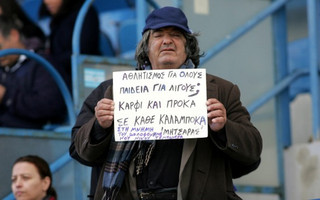 ΑΘΛΗΤΙΣΜΟΣ ΓΙΑ ΟΛΟΥΣ
ΠΑΙΔΕΙΑ ΓΙΑ ΛΙΓΟΥΣ;
ΚΑΡΦΙ ΚΑΙ ΠΡΟΚΑ
ΣΕ ΚΑΘΕ ΚΑΛΑΜΠΟΚΑ
ΣΤΗ ΜΝΗΜΗ
ΜΗΤΣΑΡΑΣ